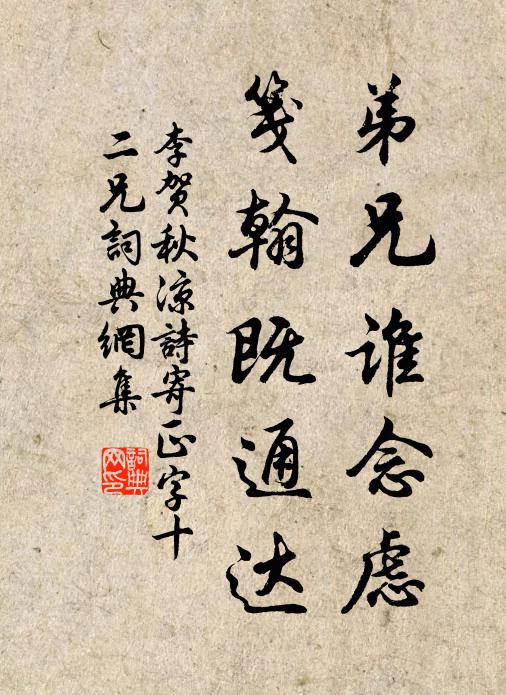 弟兄谁念虑
笺翰既通达
李贺秋凉詩寄正字十
二兄詞典網集
詞典网印